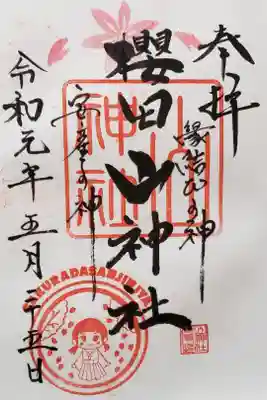 奉拝
縁結びの神
櫻田山神社
安産の神
令和元年五月二十五日